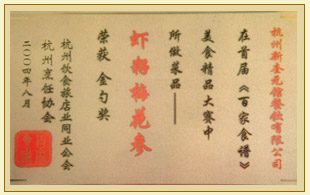 杭州新奎元馆餐饮有限公司
在首届《百家食谱》
美食精品大赛中
所做菜品——
虾籽梅花参
荣获 金勺奖
杭州饮食旅店业同业公会
杭州烹饪协会
二〇〇四年八月